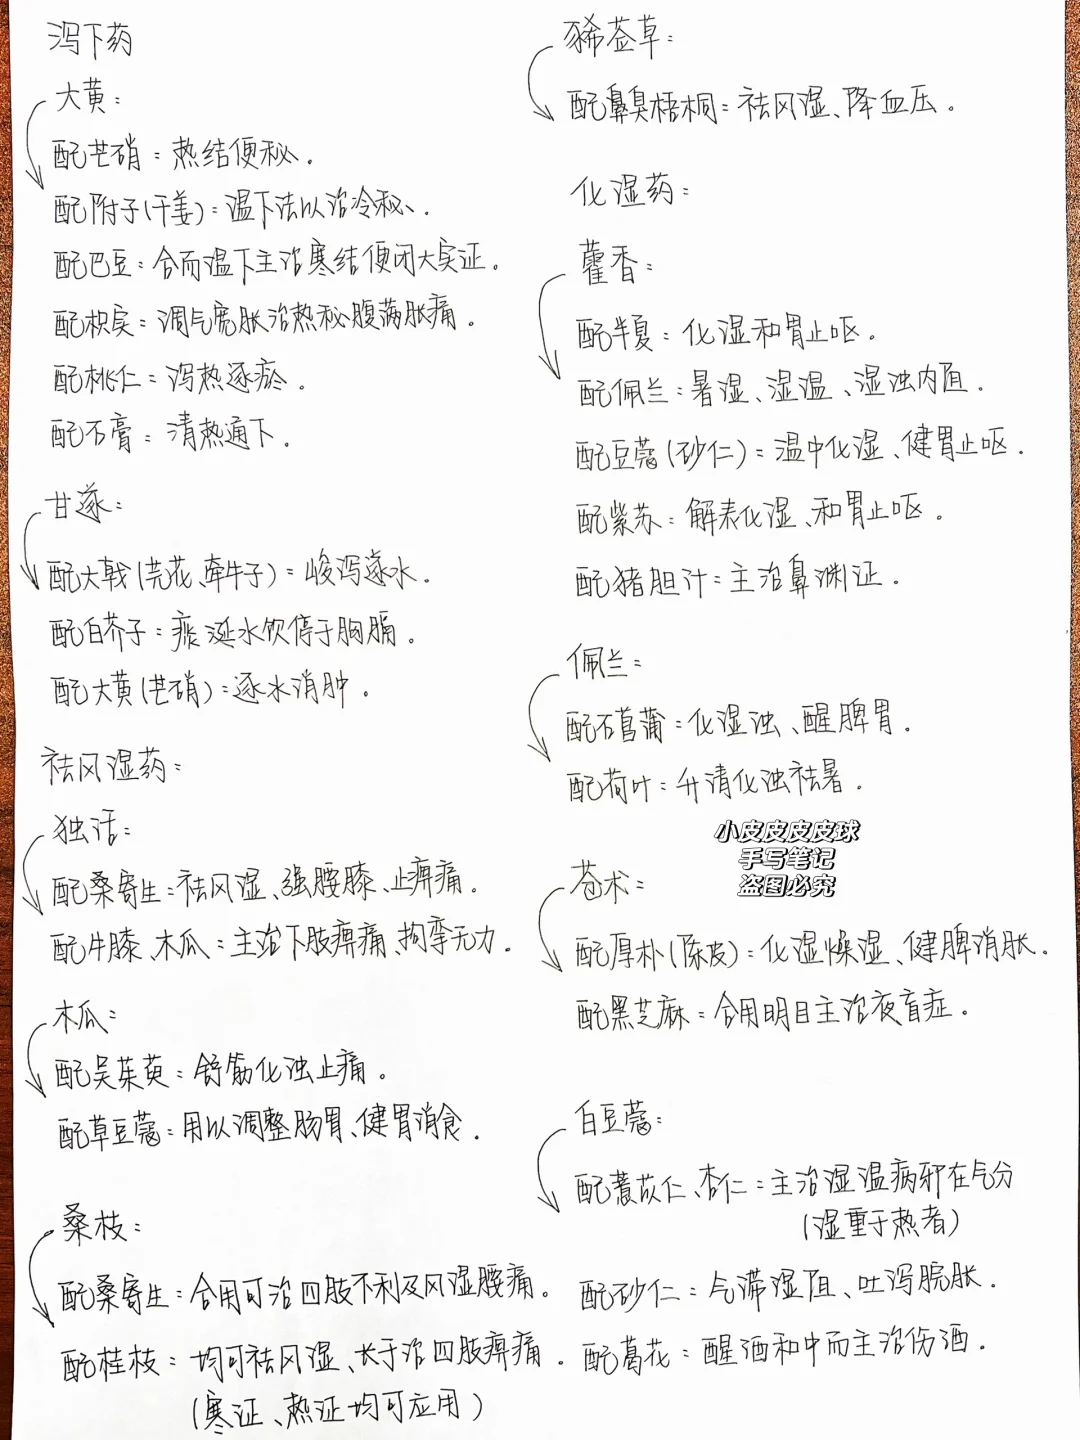 泻下药
大黄：
配芒硝：热结便秘.
配附子(干姜)：温下法以治冷秘、.
配巴豆：合而温下主治寒结便闭大实证.
配枳实：调气宽胀治热秘腹满胀痛.
配桃仁：泻热逐瘀.
配石膏：清热通下.
甘遂：
配大戟(芫花、牵牛子)：峻泻逐水.
配白芥子：痰涎水饮停于胸膈.
配大黄(芒硝)：逐水消肿.
祛风湿药：
独活：
配桑寄生：祛风湿、强腰膝、止痹痛.
配牛膝、木瓜：主治下肢痹痛、拘挛无力.
木瓜：
配吴茱萸：舒筋化浊止痛.
配草豆蔻：用以调整肠胃、健胃消食.
桑枝：
配桑寄生：合用可治四肢不利及风湿腰痛.
配桂枝：均可祛风湿、长于治四肢痹痛.
(寒证、热证均可应用)
豨莶草：
配臭梧桐：祛风湿、降血压.
化湿药：
藿香：
配半夏：化湿和胃止呕.
配佩兰：暑湿、湿温、湿浊内阻.
配豆蔻(砂仁)：温中化湿、健胃止呕.
配紫苏：解表化湿、和胃止呕.
配猪胆汁：主治鼻渊证.
佩兰：
配石菖蒲：化湿浊、醒脾胃.
配荷叶：升清化浊祛暑.
小皮皮皮皮球
手写笔记
盗图必究
苍术：
配厚朴(陈皮)：化湿燥湿、健脾消胀.
配黑芝麻：合用明目主治夜盲症.
白豆蔻：
配薏苡仁、杏仁：主治湿温病邪在气分
(湿重于热者)
配砂仁：气滞湿阻、吐泻脘胀.
配葛花：醒酒和中而主治伤酒.